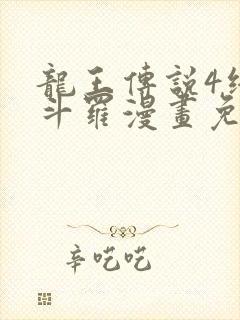 龍王傳說4終
斗羅漫畫免
辛吃吃